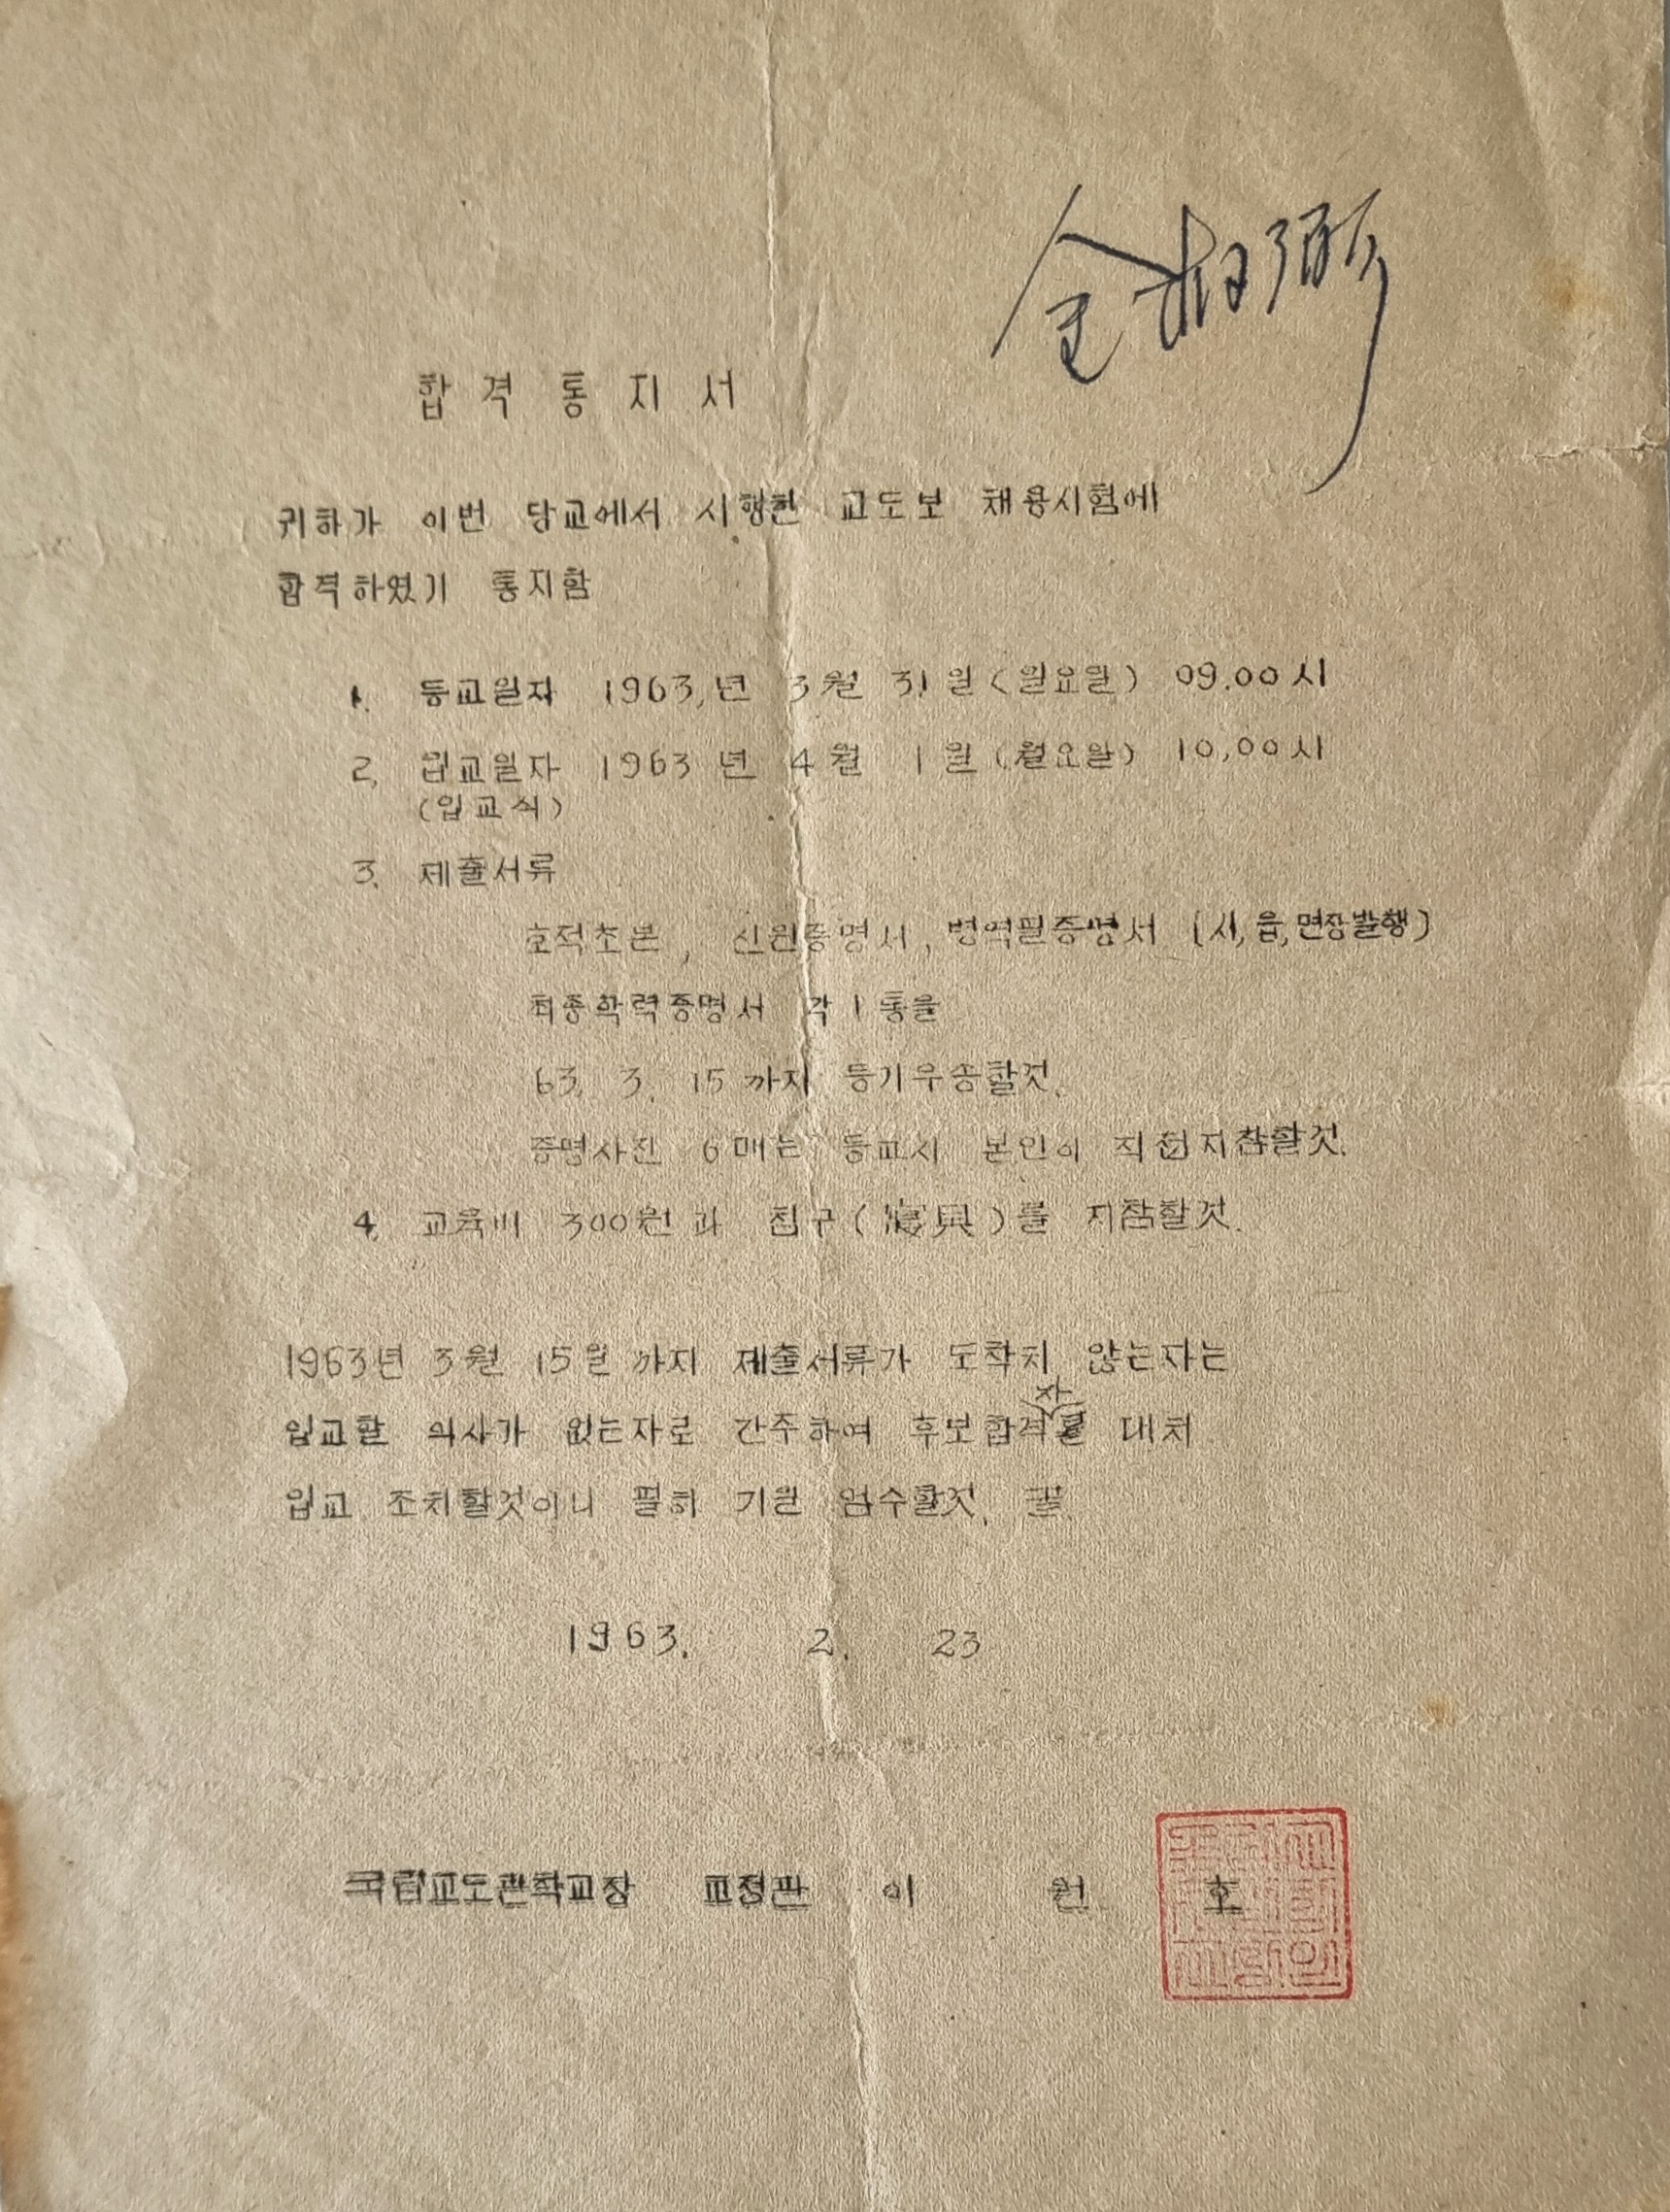 합격통지서
귀하가 이번 당교에서 시행한 교도보 채용시험에
합격하였기 통지함
1. 등교일자 1963,년 3월 31일(일요일) 09.00시
2, 입교일자 1963년 4월 1일(월요일) 10,00시
(입교식)
3. 제출서류
호적초본, 신원증명서, 병역필증명서 (시,읍,면장발행)
최종학력증명서 각1통을
63. 3. 15까지 등기우송할것.
증명사진 6매는 등교시 본인이 직접지참할것.
4, 교육비 300원과 침구(寢具)를 지참할것.
1963년 3월 15일까지 제출서류가 도착치 않는자는
입교할 의사가 없는자로 간주하여 후보합격자를 대처
입교 조치할것이니 필히 기일 엄수할것.
1963. 2. 23
국립교도관학교장 교정관 이원호